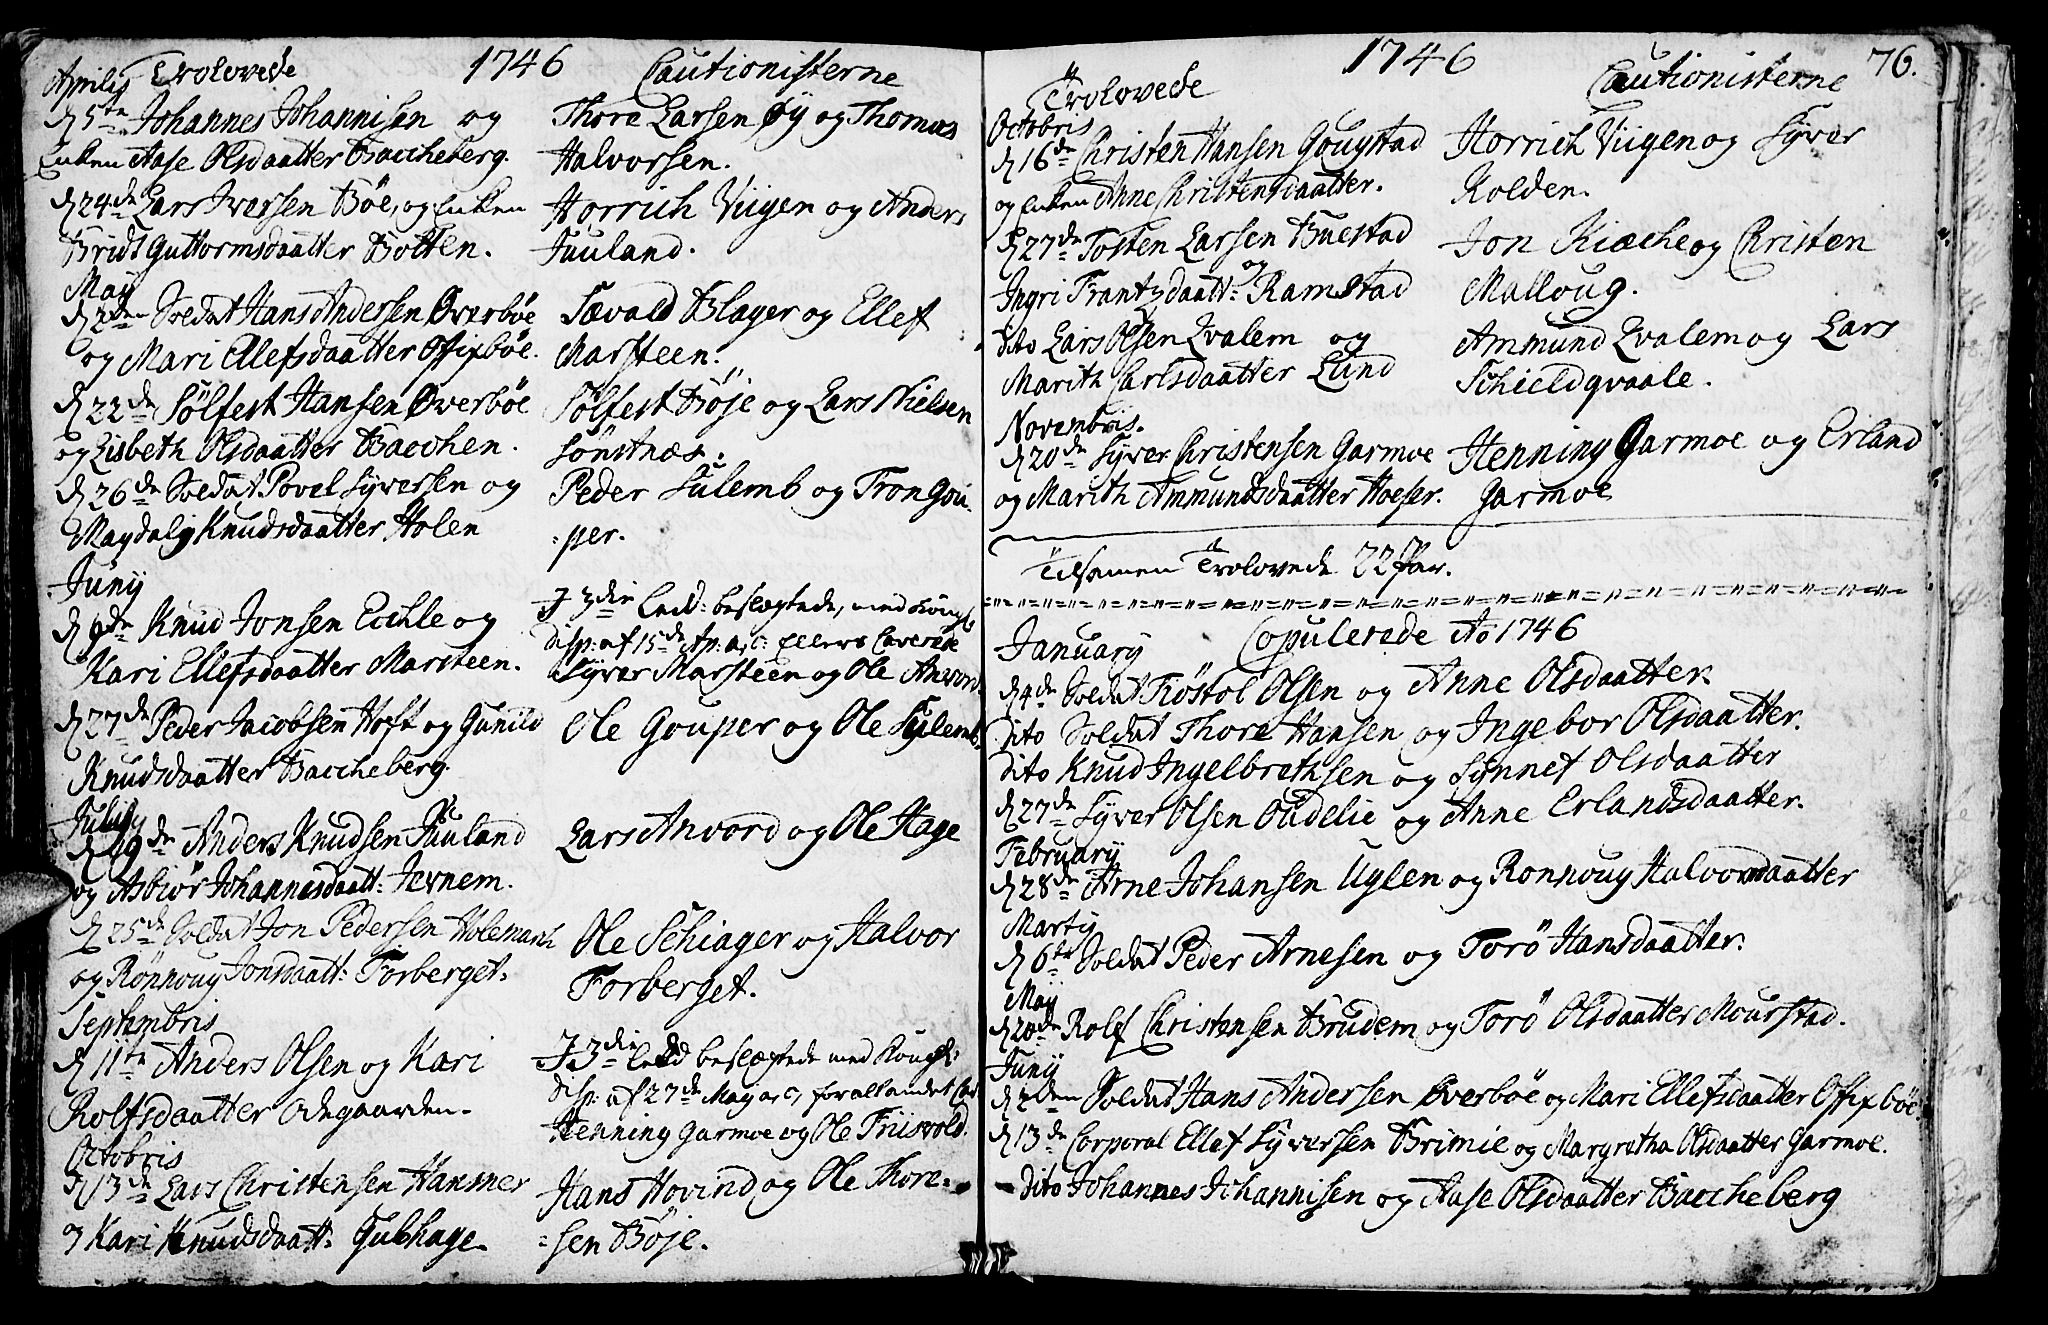 Trolovede 1746 Cautionisterne
Aprilis
d 5te Johannes Johannisen og
Enken Aase Olsdaatter Baccheberg.
Thore Larsen Øy og Thomas
Halvorsen.
d 24de Lars Iversen Bøe, og Enken
Bridt Guttormsdaatter Botten.
Horrich Viigen og Anders
Juuland.
Maÿ
d 2den Soldat Hans Andersen Øverbøe
og Mari Ellefsdaatter Offixbøe.
Sævald Blager og Ellef
Marsteen.
d 22de Sølfest Hansen Øverbøe
og Lisbeth Olsdaatter Bacchen.
Sølfest Bøje og Lars Nielsen
Sønstnæs.
d 26de Soldat Povel Syversen og
Magdali Knudsdaatter Holen
Peder Sulemb og Tron Gou-
-per.
Junij
d 9de Knud Jonsen Eckle og
Kari Ellefsdaatter Marsteen.
I 3die Ledd: beslægtede, med Kongl:
Disp: af 15de Ap: a, c: Ellers Caverede
Syver Marsteen og Ole Anvord.
d 27de Peder Jacobsen Hoft og Gunild
Knudsdaatter Baccheberg.
Ole Gouper og Ole Sylemb
Julij
d 19de Anders Knudsen Juuland
og Asbiør Johannesdaatt: Jevnem.
Lars Anvord og Ole Hage
d 25de Soldat Jon Pedersen Holemarch
og Rønnoug Jonsdaatt: Forberget.
Ole Schiager og Halvor
Forberget.
Septembris
d 11te Anders Olsen og Kari
Rolfsdaatter Odegaarden.
I 3die Ledd beslægtede med Kongl:
Disp: af 27de Maÿ a, c, for allandet Cav
Henning Garmoe og Ole Friisvold.
Octobris
d 3de Lars Christensen Hansner
og Kari Knudsdaatt: Gulhage.
Hans Hovind og Ole Thore-
-sen Bøje.
76.
Trolovede 1746 Cautionisterne
Octobris
d 16de Christen Hansen Gougstad
og Enken Anne Christensdaatter.
Horrich Viigen og Syver
Kolden.
d 27de Tosten Larsen Buestad
og
Ingri Frantzdaatt: Ramstad
Jon Kiæche og Christen
Malloug.
dito Lars Olsen Qvalem og
Marith Carlsdaatter Lund
Ammund Qvalem og Lars
Schieldqvaale.
Novembris.
d 20de Syver Christensen Garmoe
og Marith Ammundsdaatter Hoeser.
Henning Garmoe og Erland
Garmoe
Tilsamen Trolovede 22 Par.
Copulerede Ao 1746
Januarÿ
d 4de Soldat Tiøstol Olsen og Anne Olsdaatter.
Dito Soldat Thore Hansen og Ingebor Olsdaatter.
Dito Knud Ingelbrethsen og Synnef Olsdaatter
d 27de Syver Olsen Oudelie og Anne Erlandsdaatter.
Februarÿ
d 28de Arne Johansen Uglen og Ronnoug Halvorsdaatter
Martij
d 6te Soldat Peder Arnesen og Torö Hansdaatter.
Maÿ
d 20de Rolf Christensen Brudem og Torö Olsdaatter Mourstad.
Junij
d 2den Soldat Hans Andersen Øverbøe og Mari Ellefsdaatter Offixbøe
d 13de Corporal Ellef Syversen Brimie og Margretha Olsdaatter Garmoe.
- Dito Johannes Johannisen og Aase Olsdaatter Baccheberg